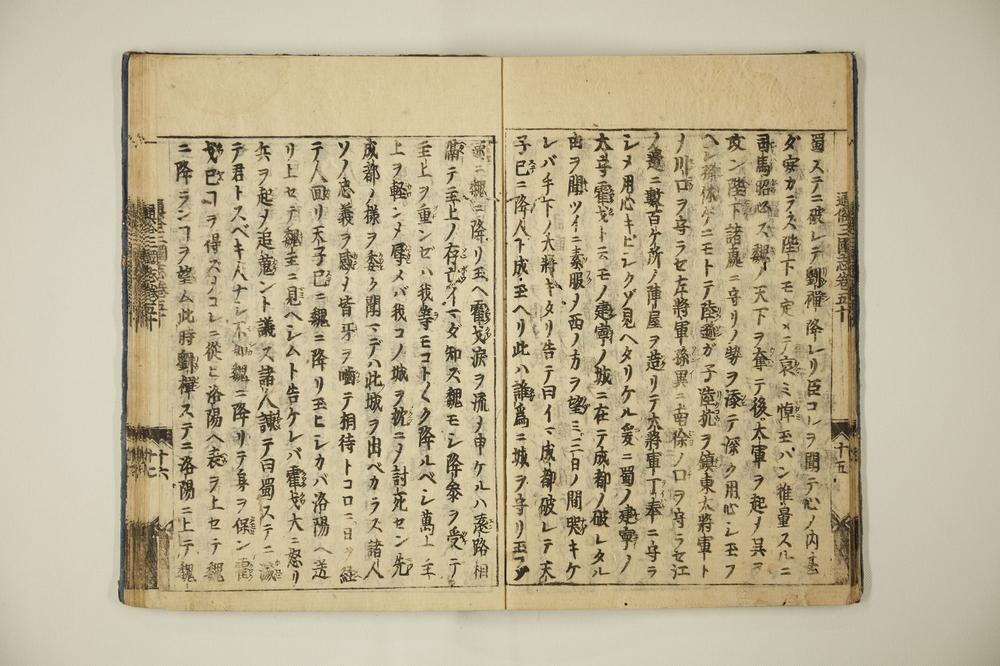 蜀ステニ破レテ劉禪降レリ臣コレヲ聞テ心ノ内甚
ダ安カラズ陛下モ定メテ哀ミ悼玉ハン推量スルニ
司馬昭心ス魏ノ天下ヲ奪テ後大軍ヲ起メ呉ヲ
攻ン陛下諸處ニ守リノ勢ヲ添テ深ク用心シ玉フ
ベシ孫休ゲニモトテ陸遜ガ子陸抗ヲ鎮東大將軍ト
ノ川口ヲ守ラセ左將軍孫異ニ南徐ノ口ヲ守ラセ江
ノ邉ニ數百ケ所ノ陣屋ヲ造リテ大將軍丁奉ニ守ラ
シメ用心キビシクゾ見ヘタリケル爰ニ蜀ノ建寧ノ
太守霍戈ト云モノ建寧ノ城ニ在テ成都ノ破レタル
由ヲ聞ツイニ素服ノ西ノ方ヲ望ミ三日ノ間哭キケ
レバ手下ノ大將キタリ告テ曰イマ成都破レテ天
子已ニ降人ト成玉ヘリ此ハ誰爲ニ城ヲ守リ玉フゾ
通俗三國志卷五十
十五
魏ニ降リ玉ヘ霍戈涙ヲ流ノ申ケルハ遠路相
隔テ主上ノ存亡イマダ知ズ魏モシ降參ヲ受テ
主上ヲ重ンゼハ我等モコトゝク降ルベシ萬一主
上ヲ軽ンメ辱メバ我コノ城ヲ枕ニメ討死セン先
成都ノ様ヲ委ク聞マデハ此城ヲ出ベカラズ諸人
ソノ忠義ヲ感メ皆牙ヲ嚙テ相待トコロニ日ヲ經
テ人回リ天子已ニ魏ニ降リ玉ヒシカバ洛陽ヘ送
リ上セテ魏主ニ見ヘシムト告ケレバ霍戈大ニ怒リ
兵ヲ起メ追蒐ント議ス諸人諌テ曰蜀ステニ滅
テ君トスベキ人ナシ不如魏ニ降リテ身ヲ保ン霍
戈已コヲ得ズメコレニ從ヒ洛陽ヘ表ヲ上セテ魏
ニ降ランコヲ望ム此時劉禪ステニ洛陽ニ上テ魏
十六